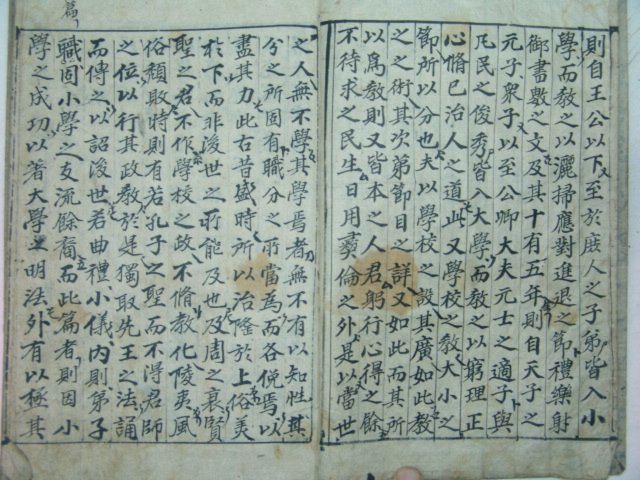 則自王公以下至於庶人之子弟皆入小
學而敎之以灑掃應對進退之節禮樂射
御書數之文及其十有五年則自天子之
元子衆子以至公卿大夫元士之適子與
凡民之俊秀皆入大學而敎之以窮理正
心脩已治人之道此又學校之敎大小之
節所以分也夫以學校之設其廣如此敎
之之術其次弟節目之詳又如此而其所
以爲敎則又皆本之人君躬行心得之餘
不待求之民生日用彛倫之外是以當世
之人無不學其學焉者無不有以知性其
分之所固有職分之所當爲而各俛焉以
盡其力此古昔盛時所以治隆於上俗美
於下而非後世之所能及也及周之衰賢
聖之君不作學校之政不脩敎化陵夷風
俗頹敗時則有若孔子之聖而不得君師
之位以行其政敎於是獨取先王之法誦
而傳之以詔後世若曲禮小儀內則弟子
職固小學之支流餘裔而此篇者則因小
學之成功以著大學之明法外有以極其
篇